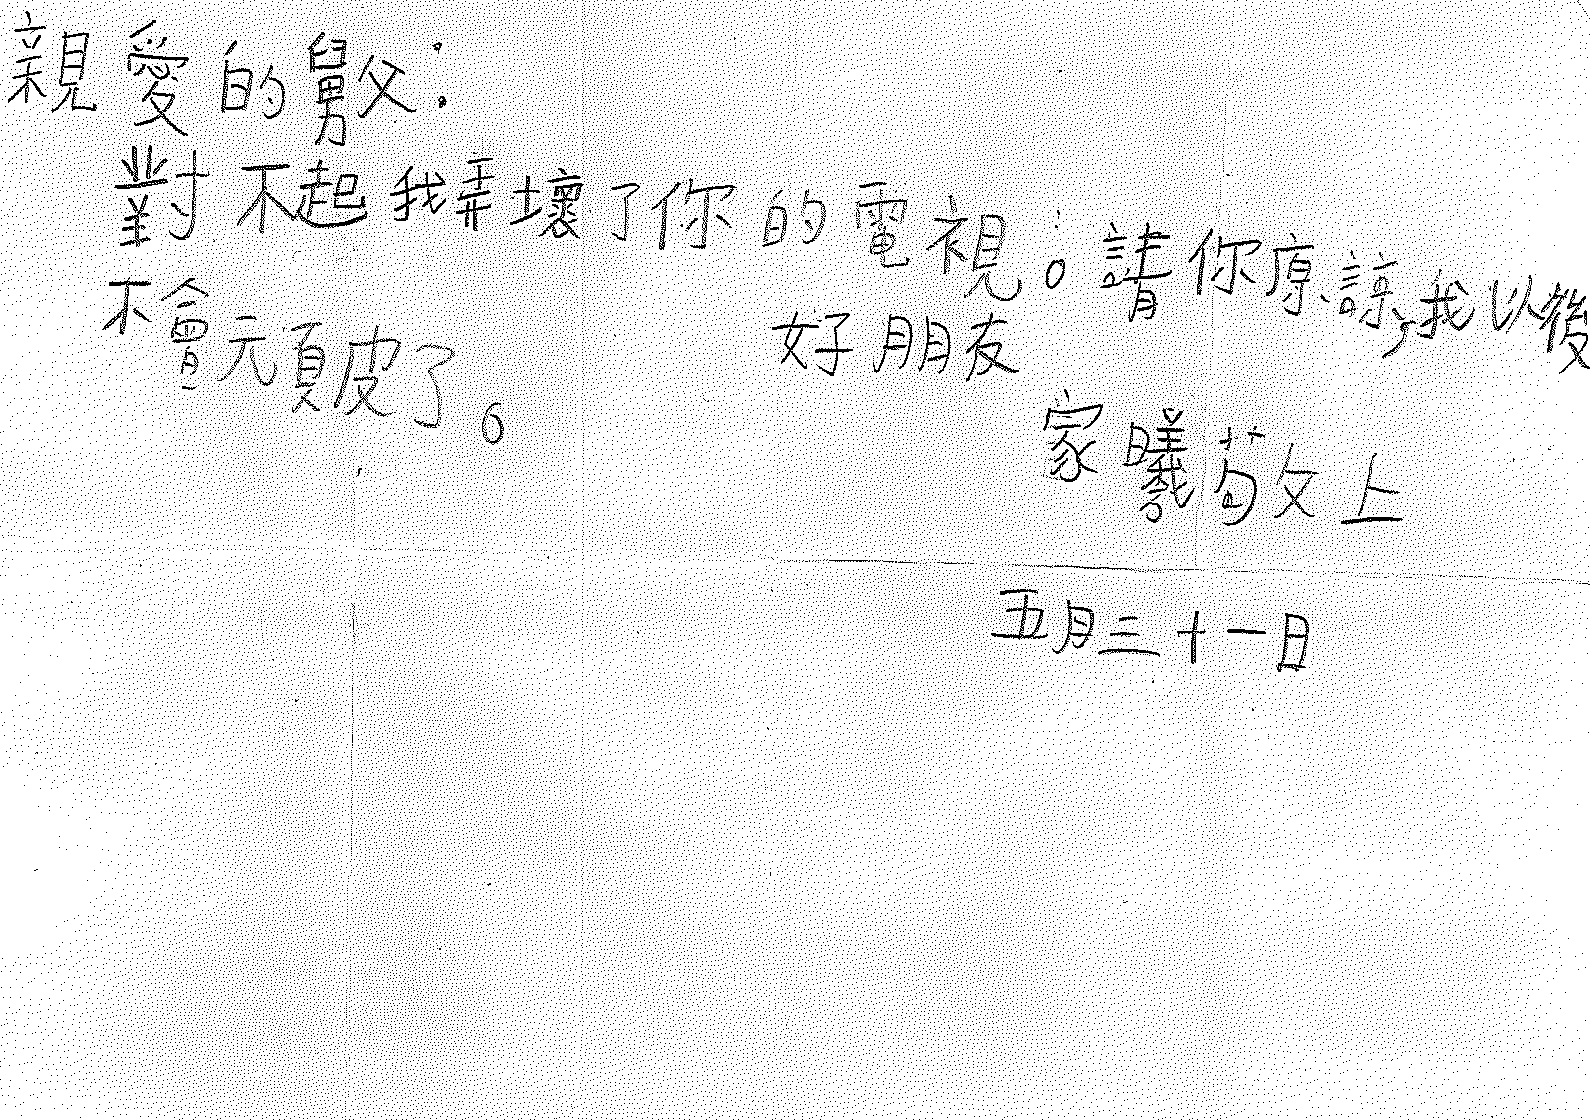 親愛的舅父：
對不起我弄壞了你的電視。請你原諒，我以後
不會元頁皮了。
好朋友
家曦敬上
五月三十一日